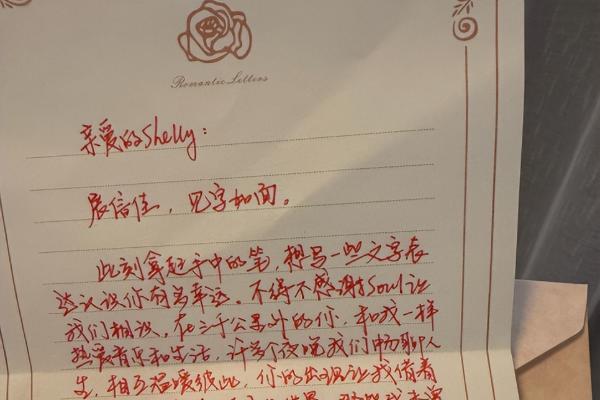 Romantic Letters
亲爱的Shelly：
展信佳，见字如面。
此刻拿起手中的笔，想写一些文字表
达认识你有多幸运。不得不感谢Soul让
我们相识。在三千公里外的你，和我一样
热爱音乐和生活，许多个夜晚我们畅聊人
生，相互温暖彼此，你的出现让我借着